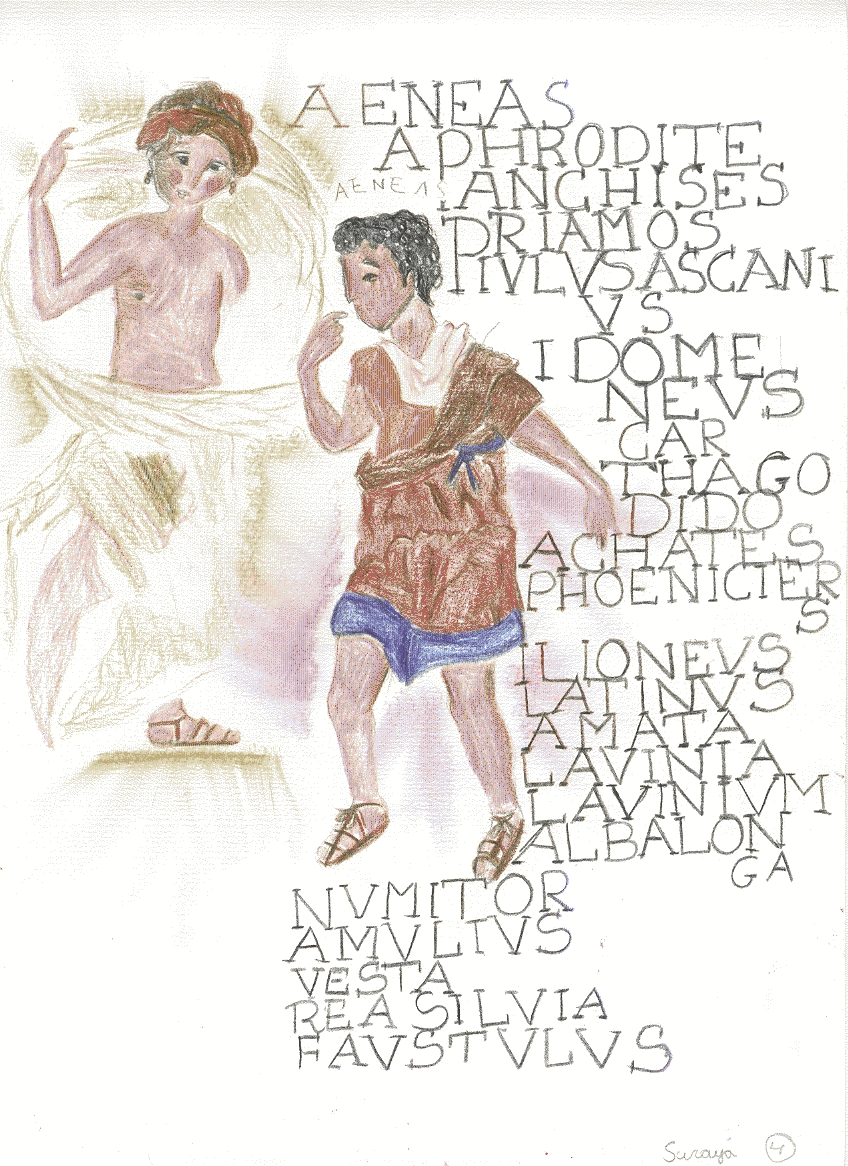 AENEAS
APHRODITE
AENEAS
ANCHISES
PRIAMOS
IVLVSASCANI
VS
IDOME
NEVS
CAR
THAGO
DIDO
ACHATES
PHOENICIER
S
ILIONEVS
LATINVS
AMATA
LAVINIA
LAVINIVM
ALBALON
GA
NVMITOR
AMVLIVS
VESTA
REA SILVIA
FAVSTVLVS
Surayá 4